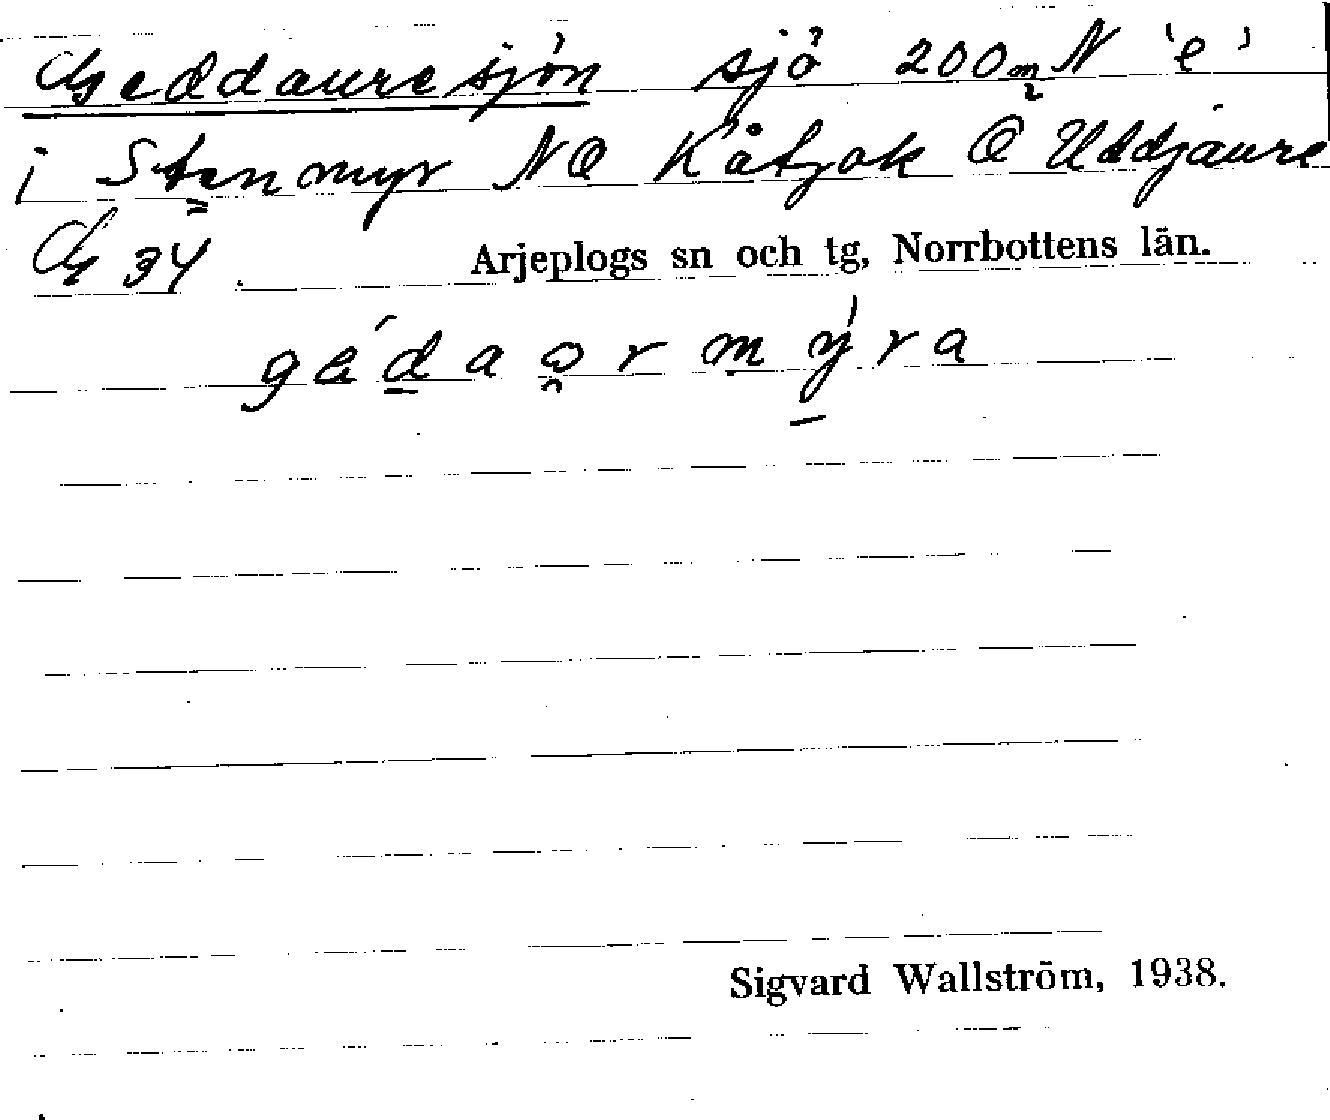 Geddauresjön sjö 200 m N 'e'
i Stenmyr NO Kåtjok O Uddjaure
G 34 Arjeplogs sn och tg, Norrbottens län.
géda o̯r mýra
Sigvard Wallström, 1938.